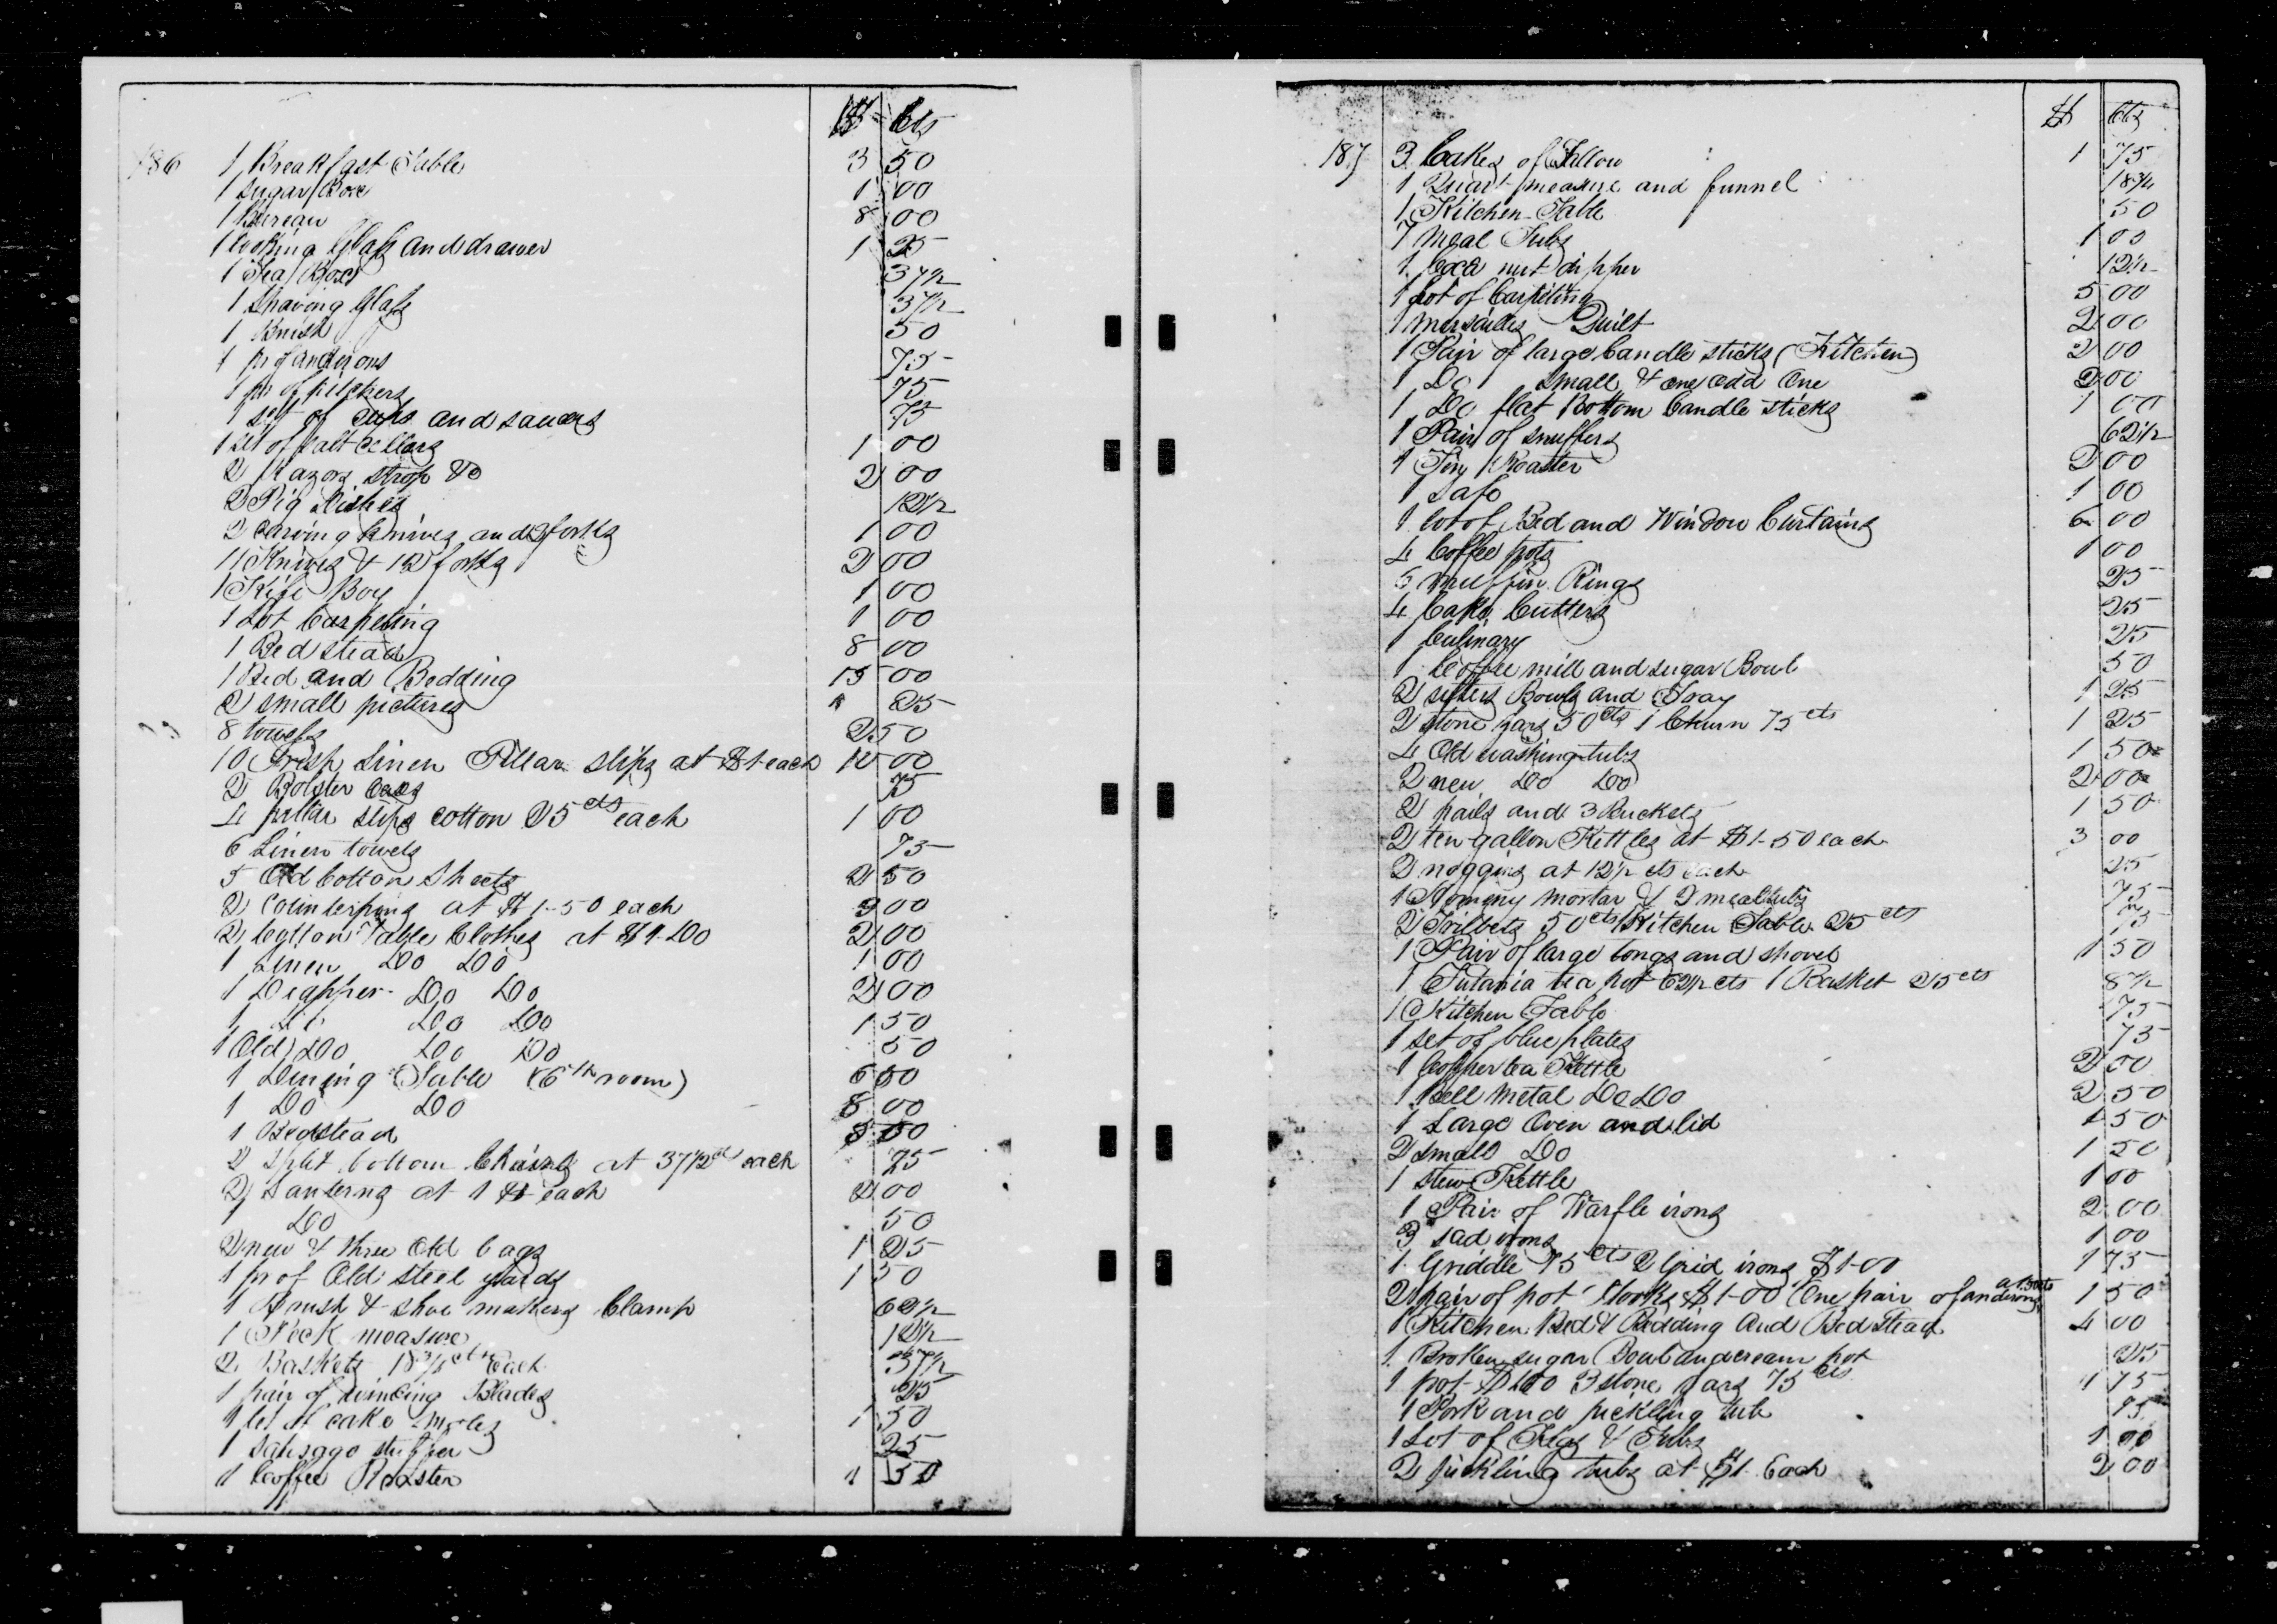 $ Cts
186 1 Breakfast Table 3 50
1 Sugar Box 1 00
1 Bureau 8 00
1 looking Glass and drawer 1 25
1 Tea Box 37½
1 Shaving Glass 37½
1 Brush 50
1 pr of andirons 75
1 pr of pitchers 75
1 set of cups and saucers 75
1 set of salt cellars 1 00
2 Razors strop &c 2 00
2 Pig Dishes 12½
2 carving knives and 2 forks 1 00
11 Knives & 12 forks 2 00
1 Kife Box 1 00
1 Lot Carpeting 1 00
1 Bed stead 8 00
1 Bed and Bedding 15 00
2 small pictures 25
8 towels 2 50
10 Irish Linen Pillar slips at $1 each 10 00
2 Bolster Cases 75
4 pillar slips cotton 25 cts each 1 00
6 Linen towels 75
5 Old Cotton Sheets 2 50
2 Counterpins at $1-50 each 3 00
2 Cotton Table Clothes at $1.00 2 00
1 Linen Do Do 1 00
1 Diapper Do Do 2 00
1 Do Do 1 50
1 Old Do Do Do 50
1 Dining Table (6th room) 6 00
1 Do Do 8 00
1 Bedstead
2 split bottom Chairs at 37½ cts each 75
2 Lanterns at 1 $ each 2 00
1 Do 50
2 new & three Old bags 1 25
1 pr of Old steel yards 1 50
1 Brush & shoe makers Clamp 62½
1 Peck measure 12½
2 Baskets 18¾ cts Each 37½
1 pair of winding Blades 25
1 set of cake moles 1 50
1 Sausage stuffer 25
1 Coffee Roaster 1 50
$ Cts
187 3 Cakes of Tallow 1 75
1 Quart measure and funnel 18¾
1 Kitchen Table 50
7 Meal Tubs 1 00
1 Coca nut dipper 12½
1 Lot of Carpeting 5 00
1 Marsailes Quilt 2 00
1 Pair of large Candle sticks (Kitchen) 2 00
1 Do small & one odd One 2 00
1 Do flat Bottom Candle sticks 1 00
1 Pair of snuffers 62½
1 Tin Roaster 2 00
1 Safe 1 00
1 lot of Bed and Window Curtains 6 00
4 Coffee pots 1 00
5 muffin Rings 25
4 Cake Cutters 25
1 Culinary 25
1 Coffee mill and sugar Bowl 50
2 sifters Bowls and Tray 1 25
2 stone jars 50 cts 1 Churn 75 cts 1 25
4 Old washing tubs 1 50
2 new Do Do 2 00
2 pails and 3 Buckets 1 50
2 ten gallon Kettles at $1-50 each 3 00
2 noggins at 12½ cts each 25
1 Hominy mortar & 2 meal tubs 75
2 Trilbets 50 cts Kitchen Table 25 cts 75
1 Pair of large tongs and shovel 1 50
1 Tutania tea pot 62½ cts 1 Basket 25 cts 87½
1 Kitchen Table 75
1 set of blue plates 75
1 Copper tea Kettle 2 50
1 Bell Metal Do Do 2 50
1 Large Oven and lid 1 50
2 Small Do 1 50
1 stew Kettle 1 00
1 Pair of Warfle irons 2 00
3 sad irons 1 00
1 Griddle 75 cts 2 Grid irons $1-00 1 75
2 pair of pot Hooks $1-00 One pair of andirons at 50 cts 1 50
1 Kitchen Bed & Bedding And Bed Stead 4 00
1 Broken sugar Bowl and cream pot 25
1 pot $1.00 3 stone jars 75 cts 1 75
1 Pork and pickling tub 75
1 Lot of Kegs & Tubs 1 00
2 pickling tubs at $1 Each 2 00